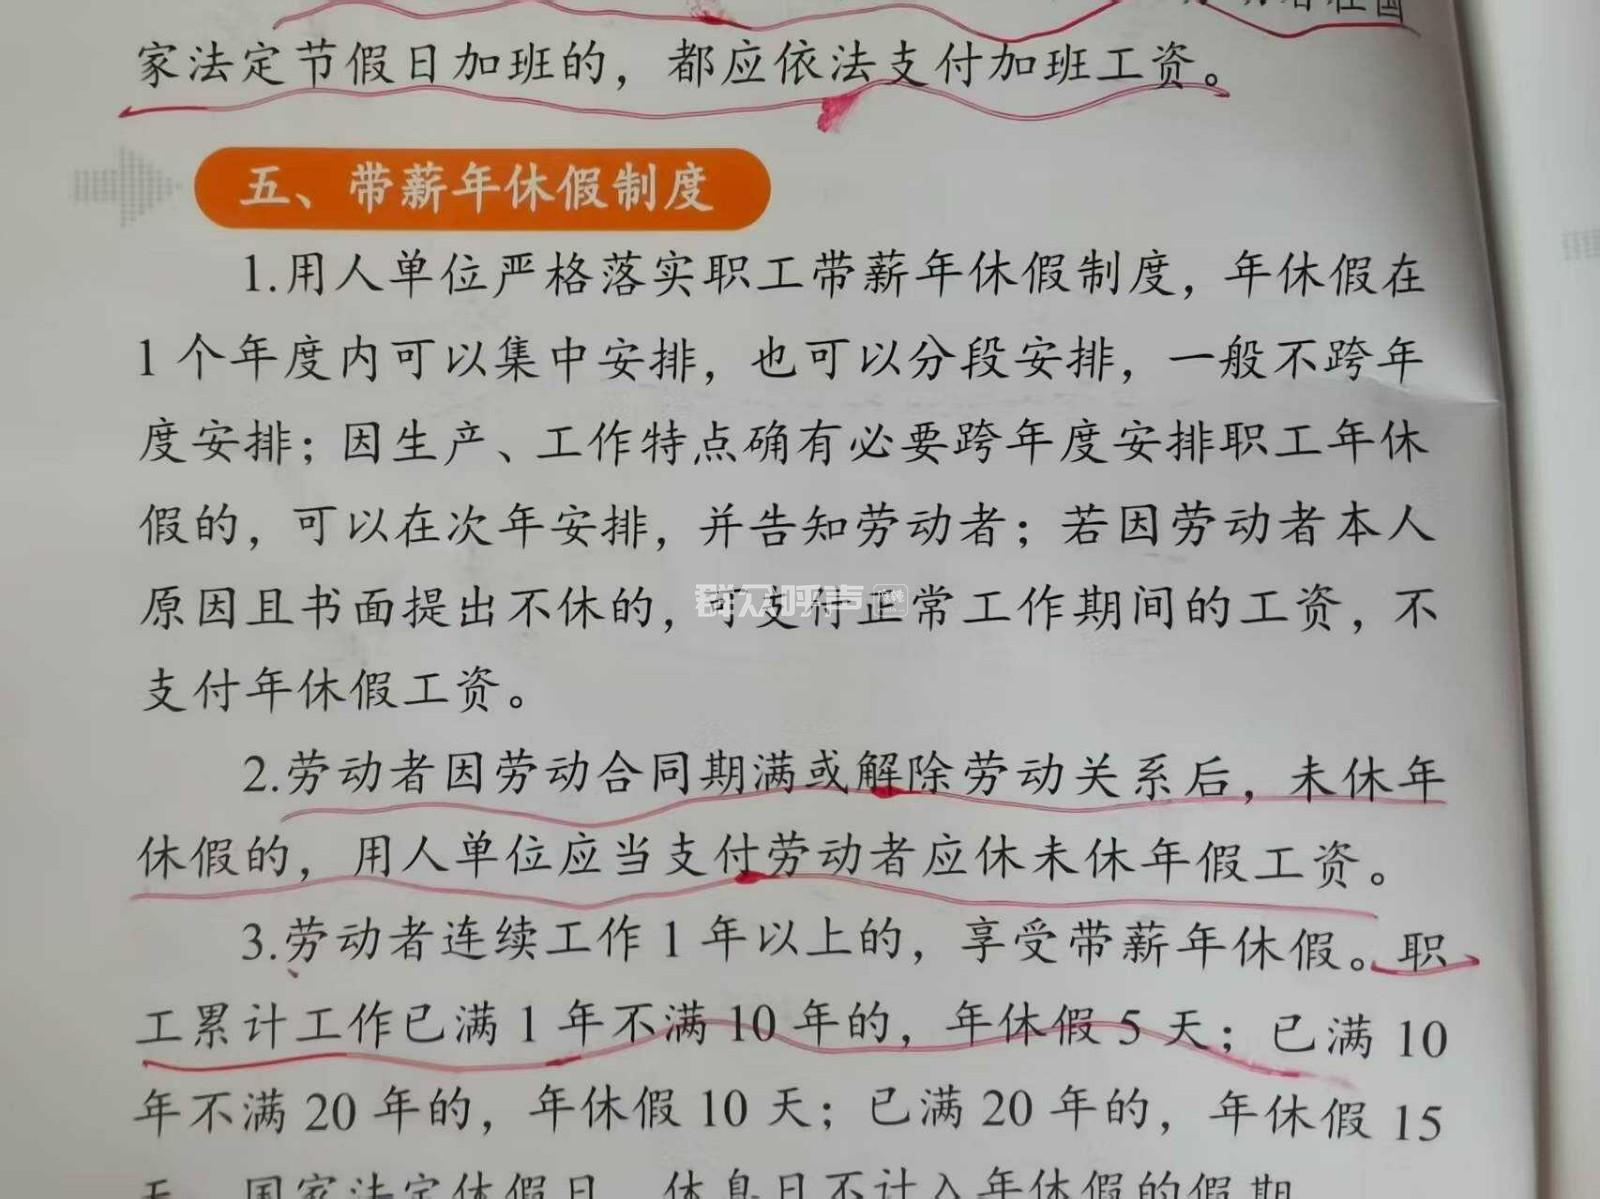 家法定节假日加班的，都应依法支付加班工资。
五、带薪年休假制度
1.用人单位严格落实职工带薪年休假制度，年休假在
1个年度内可以集中安排，也可以分段安排，一般不跨年
度安排；因生产、工作特点确有必要跨年度安排职工年休
假的，可以在次年安排，并告知劳动者；若因劳动者本人
原因且书面提出不休的，可支付正常工作期间的工资，不
支付年休假工资。
群众呼声
2.劳动者因劳动合同期满或解除劳动关系后，未休年
休假的，用人单位应当支付劳动者应休未休年假工资。
3.劳动者连续工作1年以上的，享受带薪年休假。职
工累计工作已满1年不满10年的，年休假5天；已满10
年不满20年的，年休假10天；已满20年的，年休假15
天。国家法定休假日、休息日不计入年休假的假期。